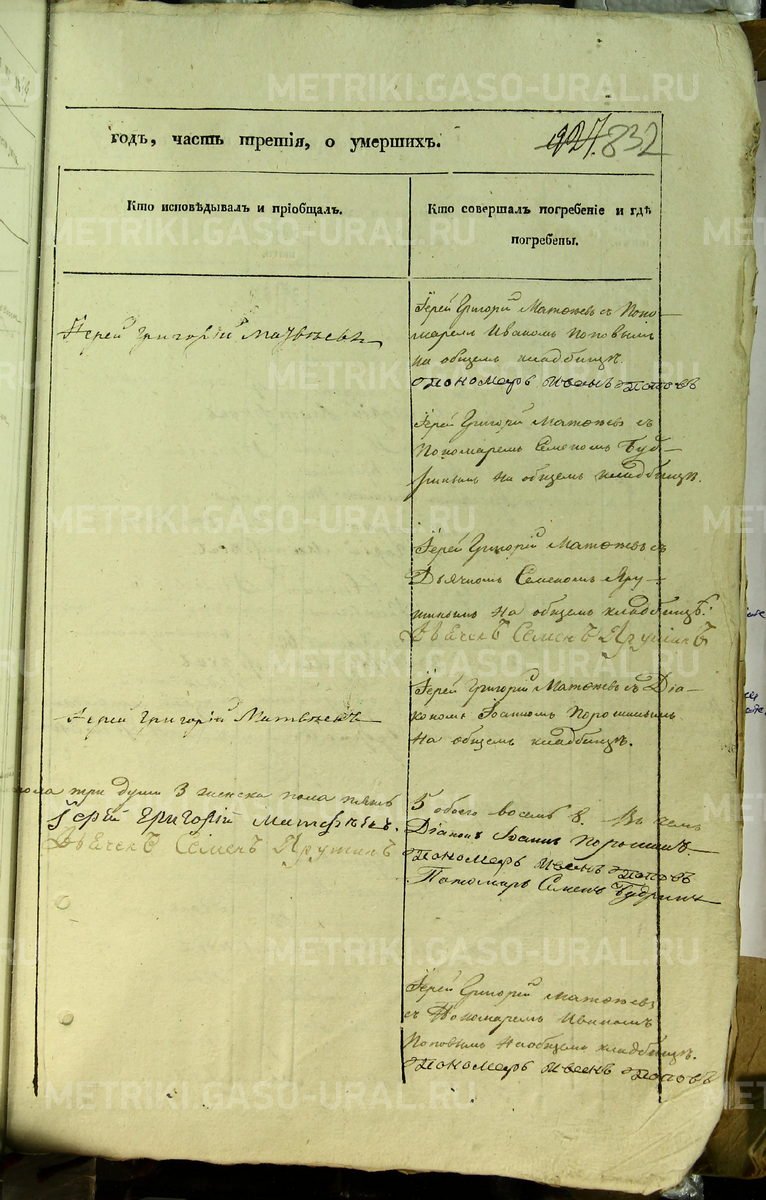 METRIKI.GASO-URAL.RU
годъ, часть третія, о умершихъ.
927. 832
Кто исповѣдывалъ и пріобщалъ.
Кто совершалъ погребеніе и гдѣ
погребены.
Іерей Григорій Матвѣевъ
Іерей Григорій Матвѣевъ съ Поно-
маремъ Иваномъ Поповымъ
на общемъ кладбищѣ.
Пономарь Иванъ Поповъ
Іерей Григорій Матвѣевъ съ
Пономаремъ Семеномъ Буд-
ринымъ на общемъ кладбищѣ.
Іерей Григорій Матвѣевъ съ
Дьячкомъ Семеномъ Яру-
шинымъ на общемъ кладбищѣ.
Дьячекъ Семенъ Ярушинъ
Іерей Григорій Матвѣевъ
Іерей Григорій Матвѣевъ съ Діа-
кономъ Іоанномъ Порошинымъ
на общемъ кладбищѣ.
пола три души 3 женска пола пять
5 обоего восемь 8. Въ чемъ
Іерей Григорій Матвѣевъ.
Діаконъ Іоаннъ Порошинъ.
Дьячекъ Семенъ Ярушинъ
Пономарь Иванъ Поповъ
Пономарь Семенъ Будринъ
Іерей Григорій Матвѣевъ
съ Пономаремъ Иваномъ
Поповымъ на общемъ кладбищѣ.
Пономарь Иванъ Поповъ